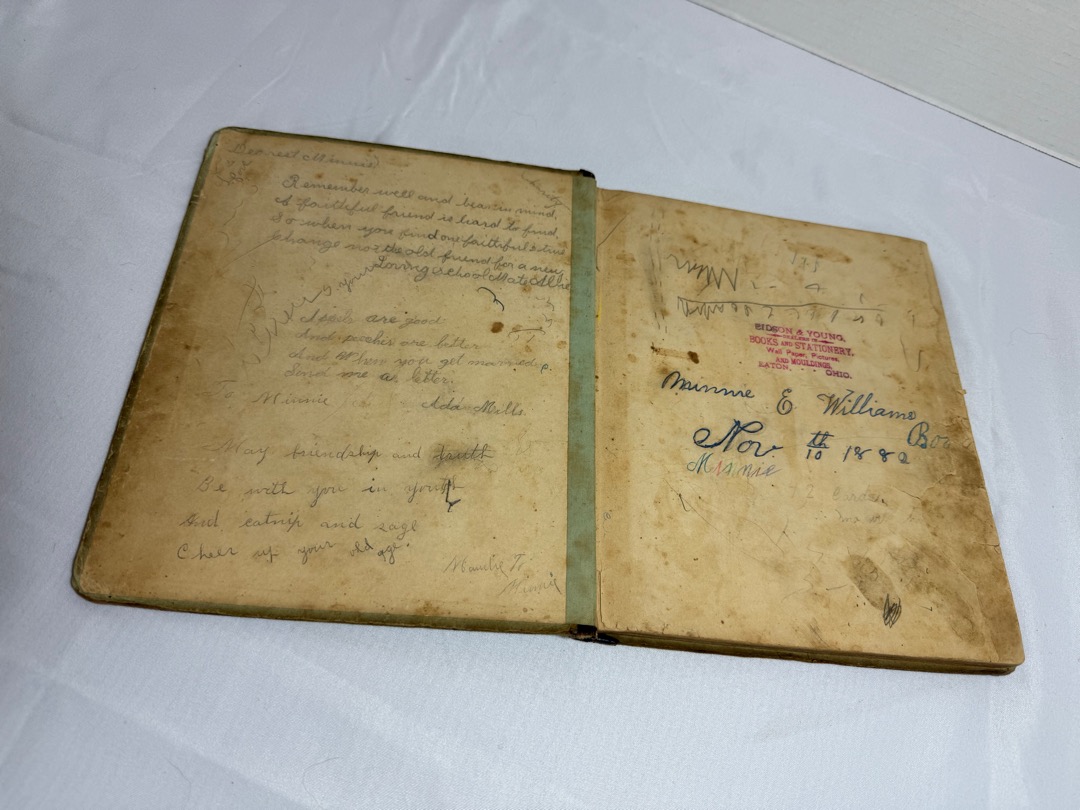 Dearest Minnie
Remember well and bear in mind,
A faithful friend is hard to find
So when you find one faithful & true
Change not the old friend for a new
your Loving school Mate
Apples are good
And peaches are better
And When you get married
Send me a letter.
To Minnie Ada Mills.
May friendship and truth
Be with you in youth
And catnip and sage
Cheer up your old age.
To
Minnie
BIDSON & YOUNG,
DEALERS IN
BOOKS AND STATIONERY,
Wall Paper, Pictures
AND MOULDINGS,
EATON, OHIO.
Minnie E Williams
Boo
Nov 10th 1882
Minnie